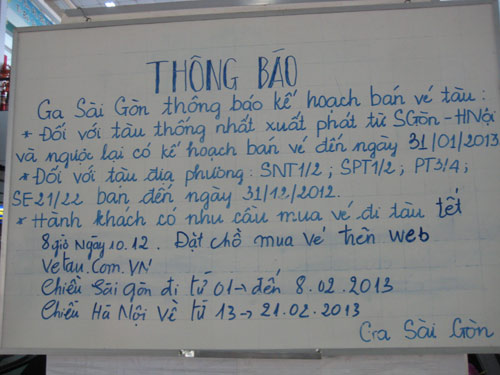 THÔNG BÁO
Ga Sài Gòn thông báo kế hoạch bán vé tàu:
* Đối với tàu thống nhất xuất phát từ SGòn-HNội
và ngược lại có kế hoạch bán vé đến ngày 31/01/2013
* Đối với tàu địa phương: SNT1/2; SPT1/2; PT3/4;
SE21/22 bán đến ngày 31/12/2012.
* Hành khách có nhu cầu mua vé đi tàu tết
8giờ Ngày 10.12. Đặt chỗ mua vé trên web
Vetau.Com.VN
Chiều Sài gòn đi từ 01→ đến 8.02.2013
Chiều Hà Nội về từ 13→21.02.2013
Ga Sài Gòn